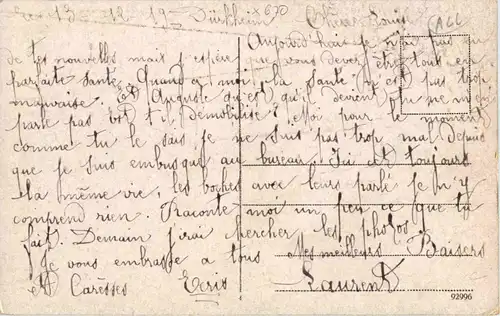 13-12-19 Dürkheim x670 Chère Louise (ALL
Aujourd'hui je n'ai pas eu
de tes nouvelles mais espère que vous devez être tout en
parfaite santé. Quand a moi la santé n'est pas trop
mauvaise. Et Auguste qu'est qu'il devient tu ne m'en
parle pas est il Démobilisé? Moi pour le moment
comme tu le sais je ne suis pas trop mal depuis
que je suis embusqué au bureau. Ici c'est toujours
la même vie, les boches avec leurs parlé je n'y
comprend rien. Raconte moi un peu ce que tu
fais. Demain j'irai chercher les photos.
Je vous embrasse a tous Mes meilleurs Baisers
et Caresses Ecris Laurent
92996